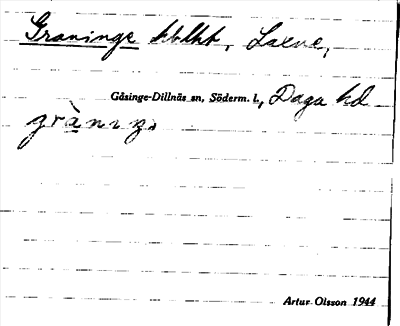 Graninge kblht, Laene,
Gåsinge-Dillnäs sn, Söderm. l., Daga hd
gràninz.
Artur Olsson 1944